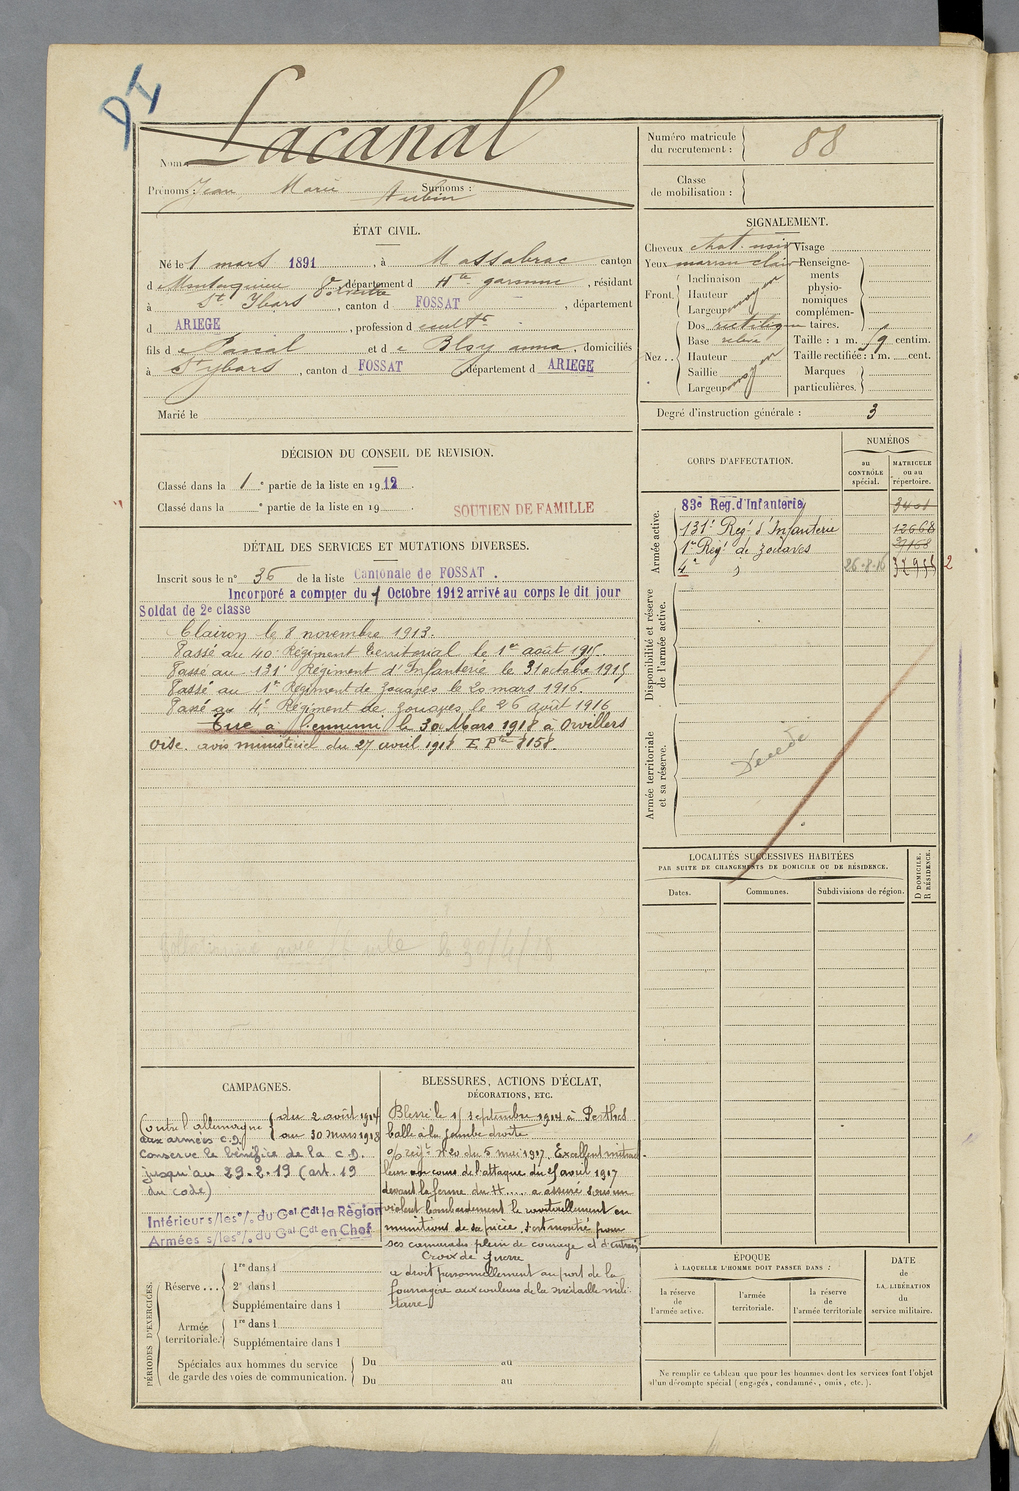 DI
Nom : Lacanal
Prénoms : Jean Marie Aubin Surnoms :
Numéro matricule du recrutement : 88
Classe de mobilisation :
ÉTAT CIVIL.
Né le 1 mars 1891, à Massabrac canton
de Montesquieu Volvestre, département de Hte garonne, résidant
à St Ybars, canton d FOSSAT, département
d ARIEGE, profession de cultr
fils de Pascal et de Bloy anna, domiciliés
à St ybars, canton d FOSSAT, département d ARIEGE
Marié le
SIGNALEMENT.
Cheveux chat. noir
Yeux marron clair
Front. Inclinaison
Hauteur moyen
Largeur
Nez .. Dos rectiligne
Base relevé
Hauteur moyen
Saillie
Largeur
Visage
Renseignements physionomiques complémentaires.
Taille : 1 m. 59 centim.
Taille rectifiée : 1 m. cent.
Marques particulières.
Degré d'instruction générale : 3
DÉCISION DU CONSEIL DE REVISION.
Classé dans la 1e partie de la liste en 1912.
Classé dans la e partie de la liste en 19 .
SOUTIEN DE FAMILLE
DÉTAIL DES SERVICES ET MUTATIONS DIVERSES.
Inscrit sous le n° 36 de la liste Cantonale de FOSSAT.
Incorporé a compter du 1 Octobre 1912 arrivé au corps le dit jour
Soldat de 2e classe
Clairon le 8 novembre 1913.
Passé au 40e Régiment territorial le 1er août 1915.
Passé au 131e Régiment d'Infanterie le 31 octobre 1915
Passé au 1er Régiment de Zouaves le 20 mars 1916.
Passé au 4e Régiment de Zouaves le 26 août 1916
Tué à l'ennemi le 30 Mars 1918 à Orvillers
Oise. avis ministériel du 27 avril 1918 8158.
le 30/4/18
CORPS D'AFFECTATION.
NUMÉROS
au CONTRÔLE spécial.
MATRICULE ou au répertoire.
Armée active.
83e Reg. d'Infanterie 3401
131e Regt d'Infanterie 12668
1er Regt de Zouaves 9168
4e " 26-8-16 32955 2
Disponibilité et réserve de l'armée active.
Armée territoriale et sa réserve.
Décédé
LOCALITÉS SUCCESSIVES HABITÉES
PAR SUITE DE CHANGEMENTS DE DOMICILE OU DE RÉSIDENCE.
Dates. Communes. Subdivisions de région. D DOMICILE. R RÉSIDENCE.
CAMPAGNES.
Contre l'allemagne du 2 août 1914
aux armées C.D. au 30 mars 1918
Conserve le bénéfice de la C.D.
jusqu'au 23-2-19 (art. 19
du code)
Intérieur s/les°/. du Gal Cdt la Région
Armées s/les°/. du Gal Cdt en Chef
BLESSURES, ACTIONS D'ÉCLAT,
DÉCORATIONS, ETC.
Blessé le septembre 1914 à Perthes
balle à la jambe droite
O/ regt N° 20 du 5 mai 1917. Excellent mitrail
leur au cours de l'attaque du avril 1917
devant la ferme du H..... a assuré sous un
violent bombardement le ravitaillement en
munitions de sa pièce, s'est montré pour
ses camarades plein de courage et d'entrain
Croix de guerre
a droit personnellement au port de la
fourragère aux couleurs de la médaille mili-
taire
PÉRIODES D'EXERCICES.
Réserve ... 1re dans l
2e dans l
Supplémentaire dans l
Armée territoriale. 1re dans l
Supplémentaire dans l
Spéciales aux hommes du service de garde des voies de communication. Du au
Du au
ÉPOQUE
À LAQUELLE L'HOMME DOIT PASSER DANS :
la réserve de l'armée active.
l'armée territoriale.
la réserve de l'armée territoriale
DATE de LA LIBÉRATION du service militaire.
Ne remplir ce tableau que pour les hommes dont les services font l'objet
d'un décompte spécial (engagés, condamnés, omis, etc.).